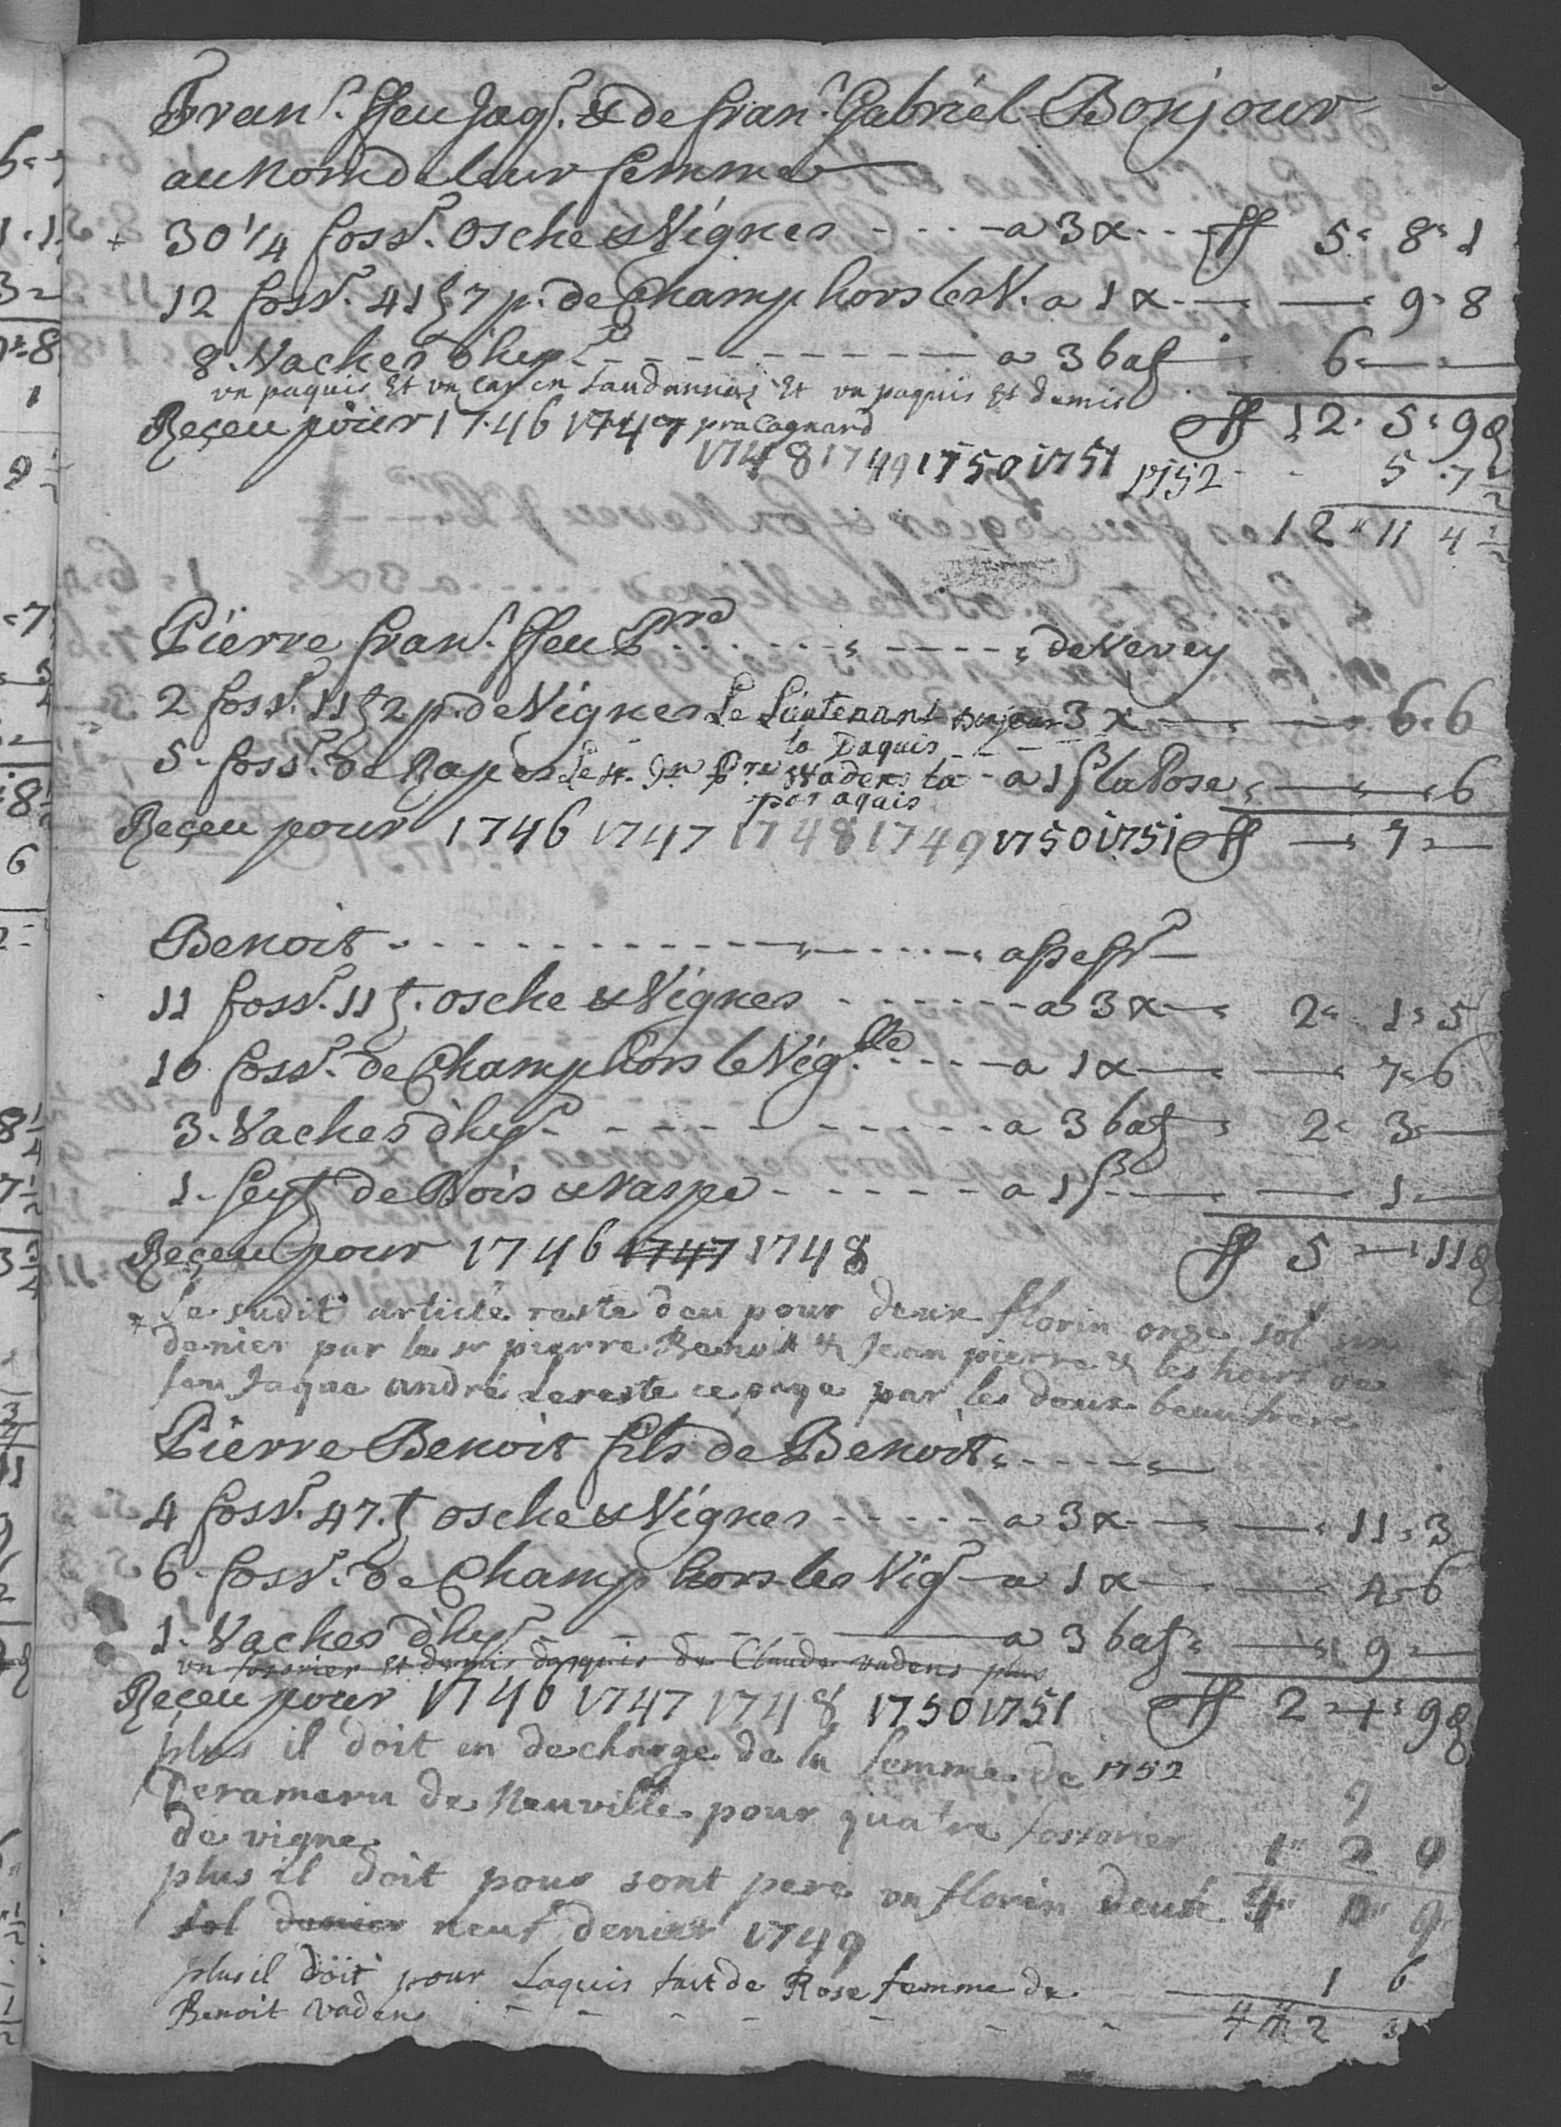 Fran.s ffeu Jaq.s & de fran.s Gabriel Bonjour
au Nom de leur femme
+ 30 1/4 foss.r Osche & Vignes - - - - a 3 x - - - ff 5 " 8 " 1
12 foss.r 41 7 p. de Champ hors les V. a 1 x — — 9 " 8
8. Vaches d'hy - - - - - - - a 3 batz 6 — —
un paquis Et un en Et un paquis Et demis
Reçeu pour 1746 1747 ff 12 " 5 " 9
1748 1749 1750 1751 1752 - - 5 " 7 1/2
12 " 11 4 1/2
Pierre fran.s ffeu P.re - - - - - - - - de Vevey
2 foss.r 11 2 p. de Vignes Le Lieutenant Bonjour 3 x — — 6 " 6
la Paquis
5 foss.r de Rapes Le Sr. Jn Pre Vadens la - a 1 ß la Pose — — 6
par aquis
Reçeu pour 1746 1747 1748 1749 1750 1751 ff — 7 —
Benoit - - - - - - - - - - - assess.r
11 foss.r 11 osche & Vignes - - - - - - a 3 x — 2 " 1 " 5
10 foss.r de Champ hors le Vig.ble - - - - a 1 x — — 7 " 6
3. Vaches d'hy - - - - - - - - - a 3 batz 2 " 3 —
1. sey de Bois & Raspe - - - - - - a 1 ß — — 1 —
Reçeu pour 1746 1747 1748 ff 5 — 11
* Le sudit article reste deu pour deux florin onze sol
denier par le sr pierre Benoit & Jean pierre & les hoirs de
feu Jaque andré le reste ce paye par les doux beau frere
Pierre Benoit fils de Benoit - - - - -
4 foss.r 47. osche & Vignes - - - - - a 3 x — — 11 " 3
6 foss.r de Champ hors les Vig - a 1 x — — 4 " 6
1. Vaches d'hy - - - - — a 3 batz — 9 —
un fossorier Et demis daquis de Claude vadens plus
Reçeu pour 1746 1747 1748 1750 1751 ff 2 " 1 " 9
plus il doit en decharge de la femme de 1752
Perameru de Neuville pour quatre fossorier 9
de vigne 1 " 2 9
plus il doit pour sont pere un florin deux 4 " 0 " 9
sol denier neuf denier 1749
plus il doit pour Laquis fait de Rose femme de — 1 6
Benoit vadens - - - - - - 4 2 3